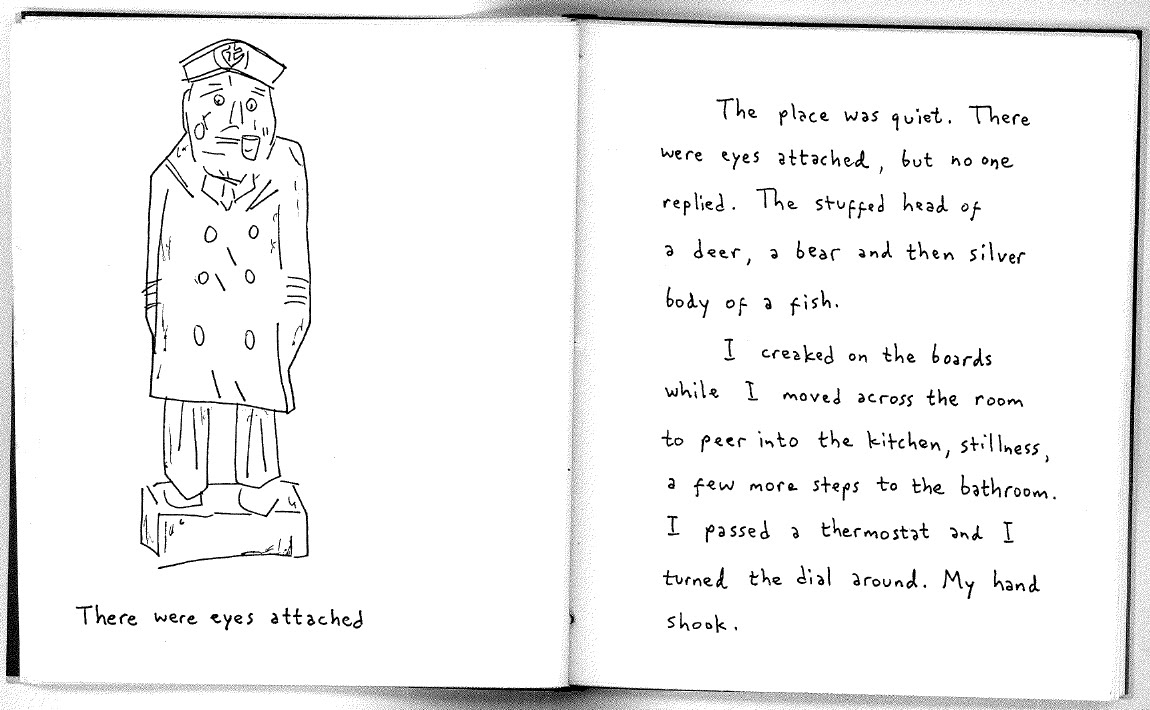 There were eyes attached
The place was quiet. There
were eyes attached, but no one
replied. The stuffed head of
a deer, a bear and then silver
body of a fish.
I creaked on the boards
while I moved across the room
to peer into the kitchen, stillness,
a few more steps to the bathroom.
I passed a thermostat and I
turned the dial around. My hand
shook.